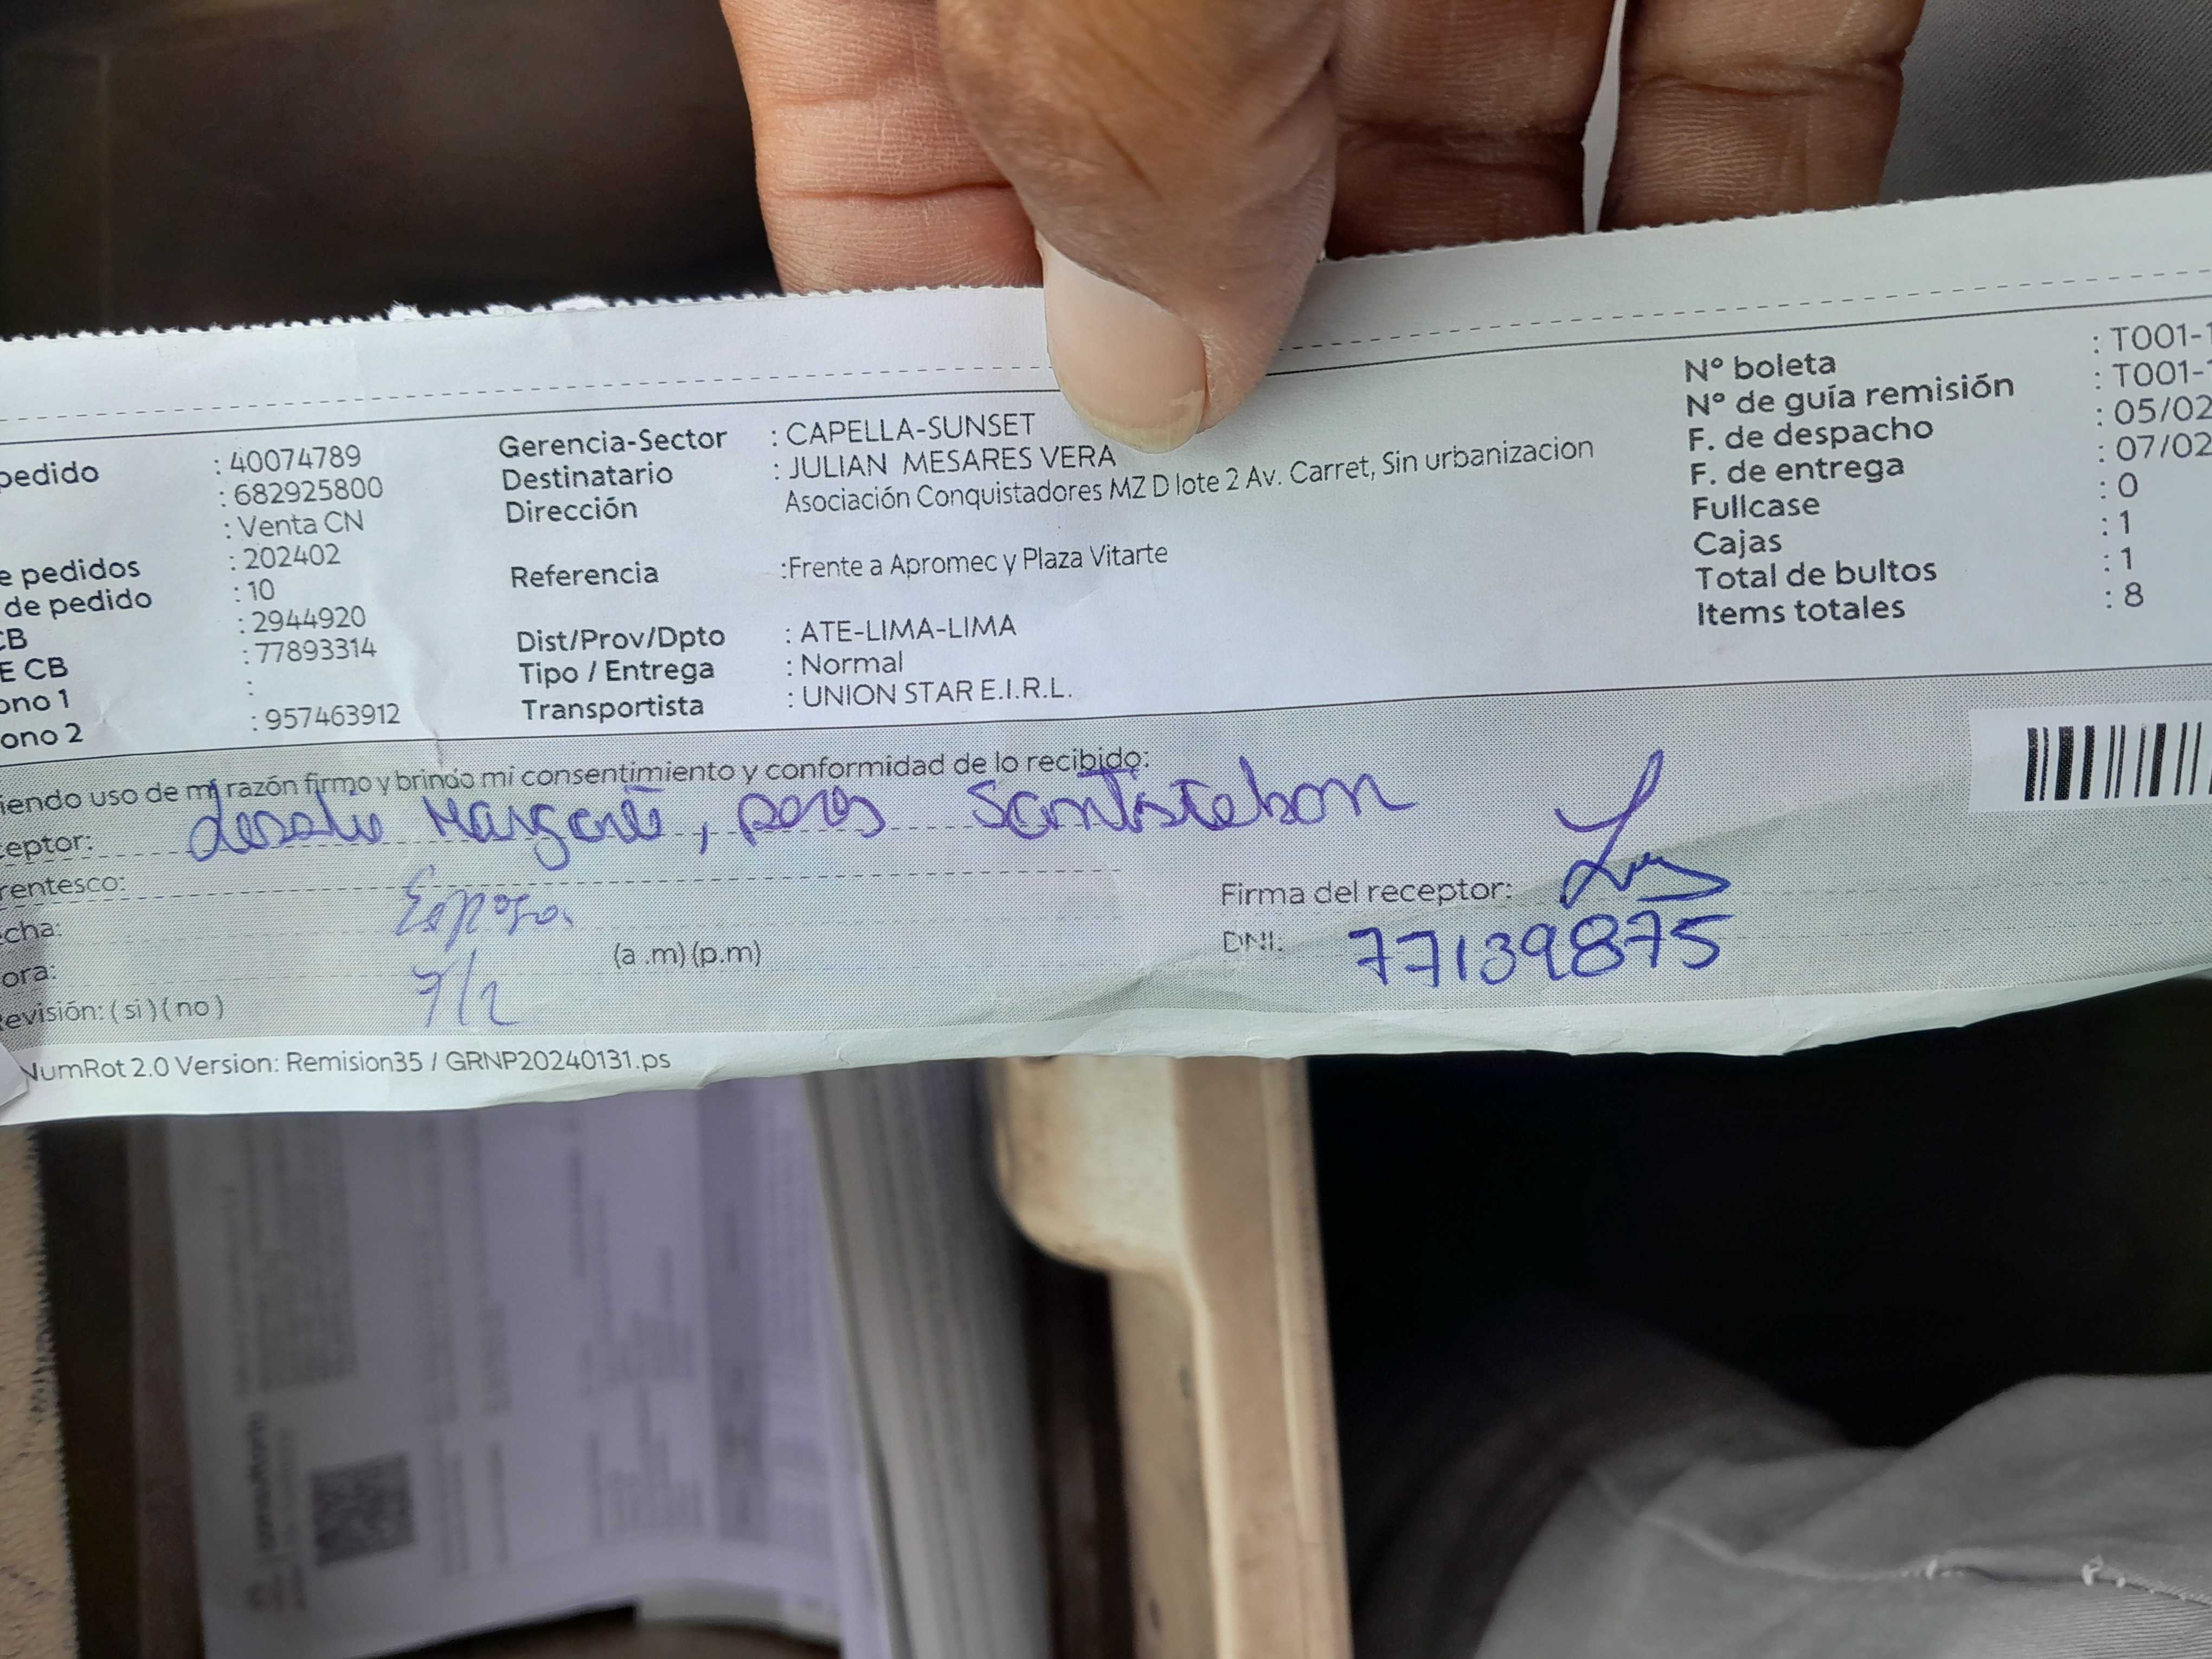 pedido : 40074789
: 682925800
: Venta CN
e pedidos : 202402
de pedido : 10
CB : 2944920
E CB : 77893314
ono 1 :
ono 2 : 957463912
Gerencia-Sector : CAPELLA-SUNSET
Destinatario : JULIAN MESARES VERA
Dirección Asociación Conquistadores MZ D lote 2 Av. Carret, Sin urbanizacion
Referencia :Frente a Apromec y Plaza Vitarte
Dist/Prov/Dpto : ATE-LIMA-LIMA
Tipo / Entrega : Normal
Transportista : UNION STAR E.I.R.L.
Nº boleta : T001-1
Nº de guía remisión : T001-1
F. de despacho : 05/02
F. de entrega : 07/02
Fullcase : 0
Cajas : 1
Total de bultos : 1
Items totales : 8
iendo uso de mi razón firmo y brindo mi consentimiento y conformidad de lo recibido:
eptor: Santisteban
rentesco: Esposa
cha: 7/2
ora: (a .m) (p.m)
evisión: ( si ) ( no )
Firma del receptor:
DNI: 77139875
NumRot 2.0 Version: Remision35 / GRNP20240131.ps